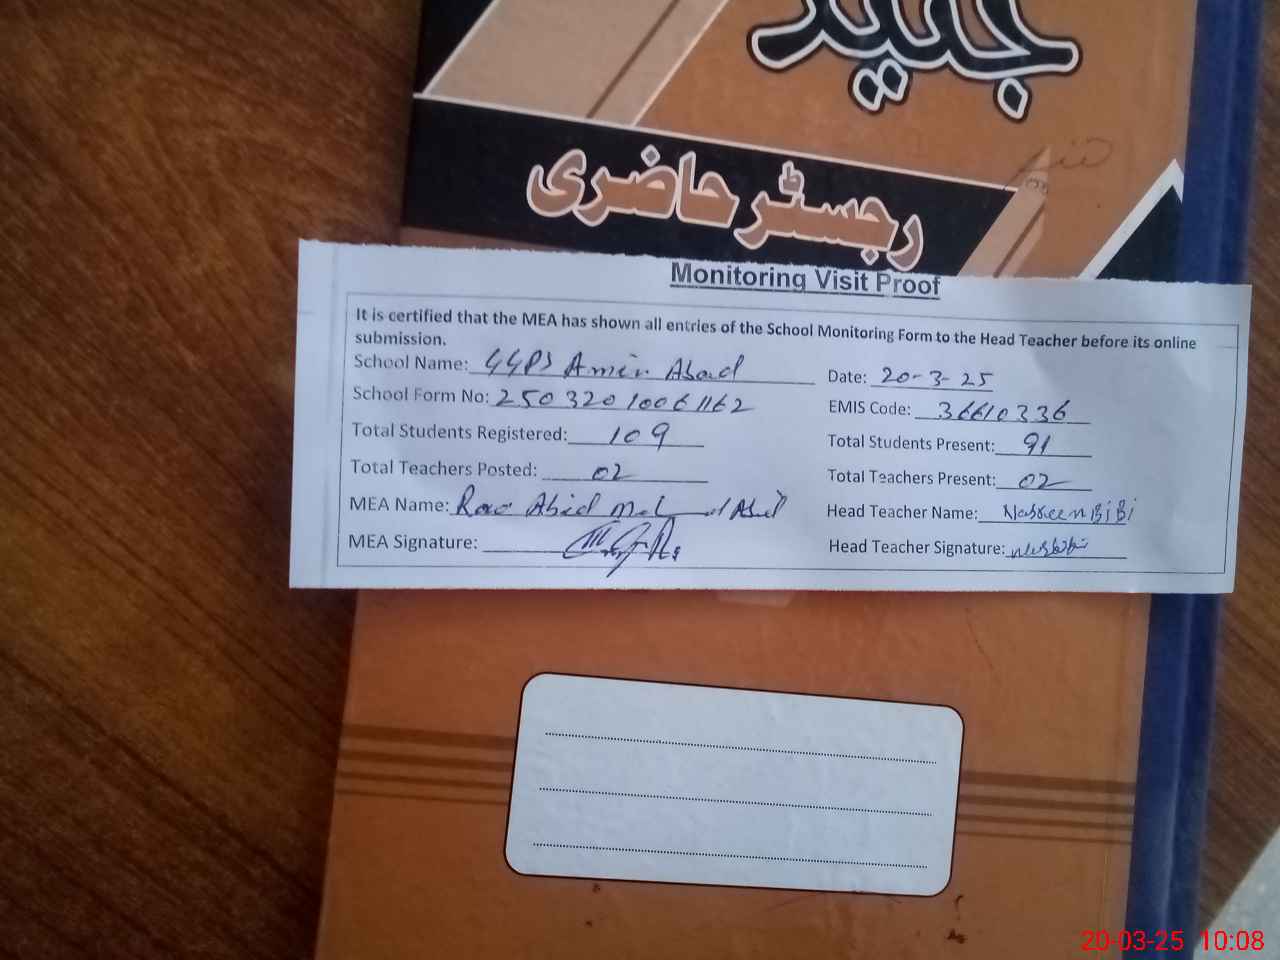 جدید
رجسٹر حاضری
Monitoring Visit Proof
It is certified that the MEA has shown all entries of the School Monitoring Form to the Head Teacher before its online
submission.
School Name: GGPS Amin Abad Date: 20-3-25
School Form No: 25032010061162 EMIS Code: 36610336
Total Students Registered: 109 Total Students Present: 91
Total Teachers Posted: 02 Total Teachers Present: 02
MEA Name: Rao Abid Head Teacher Name: Nasreen Bibi
MEA Signature: Head Teacher Signature:
20-03-25 10:08